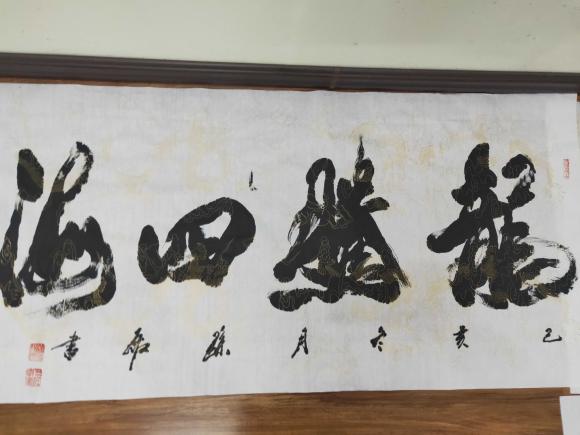 龍騰四海
己亥冬月孫書